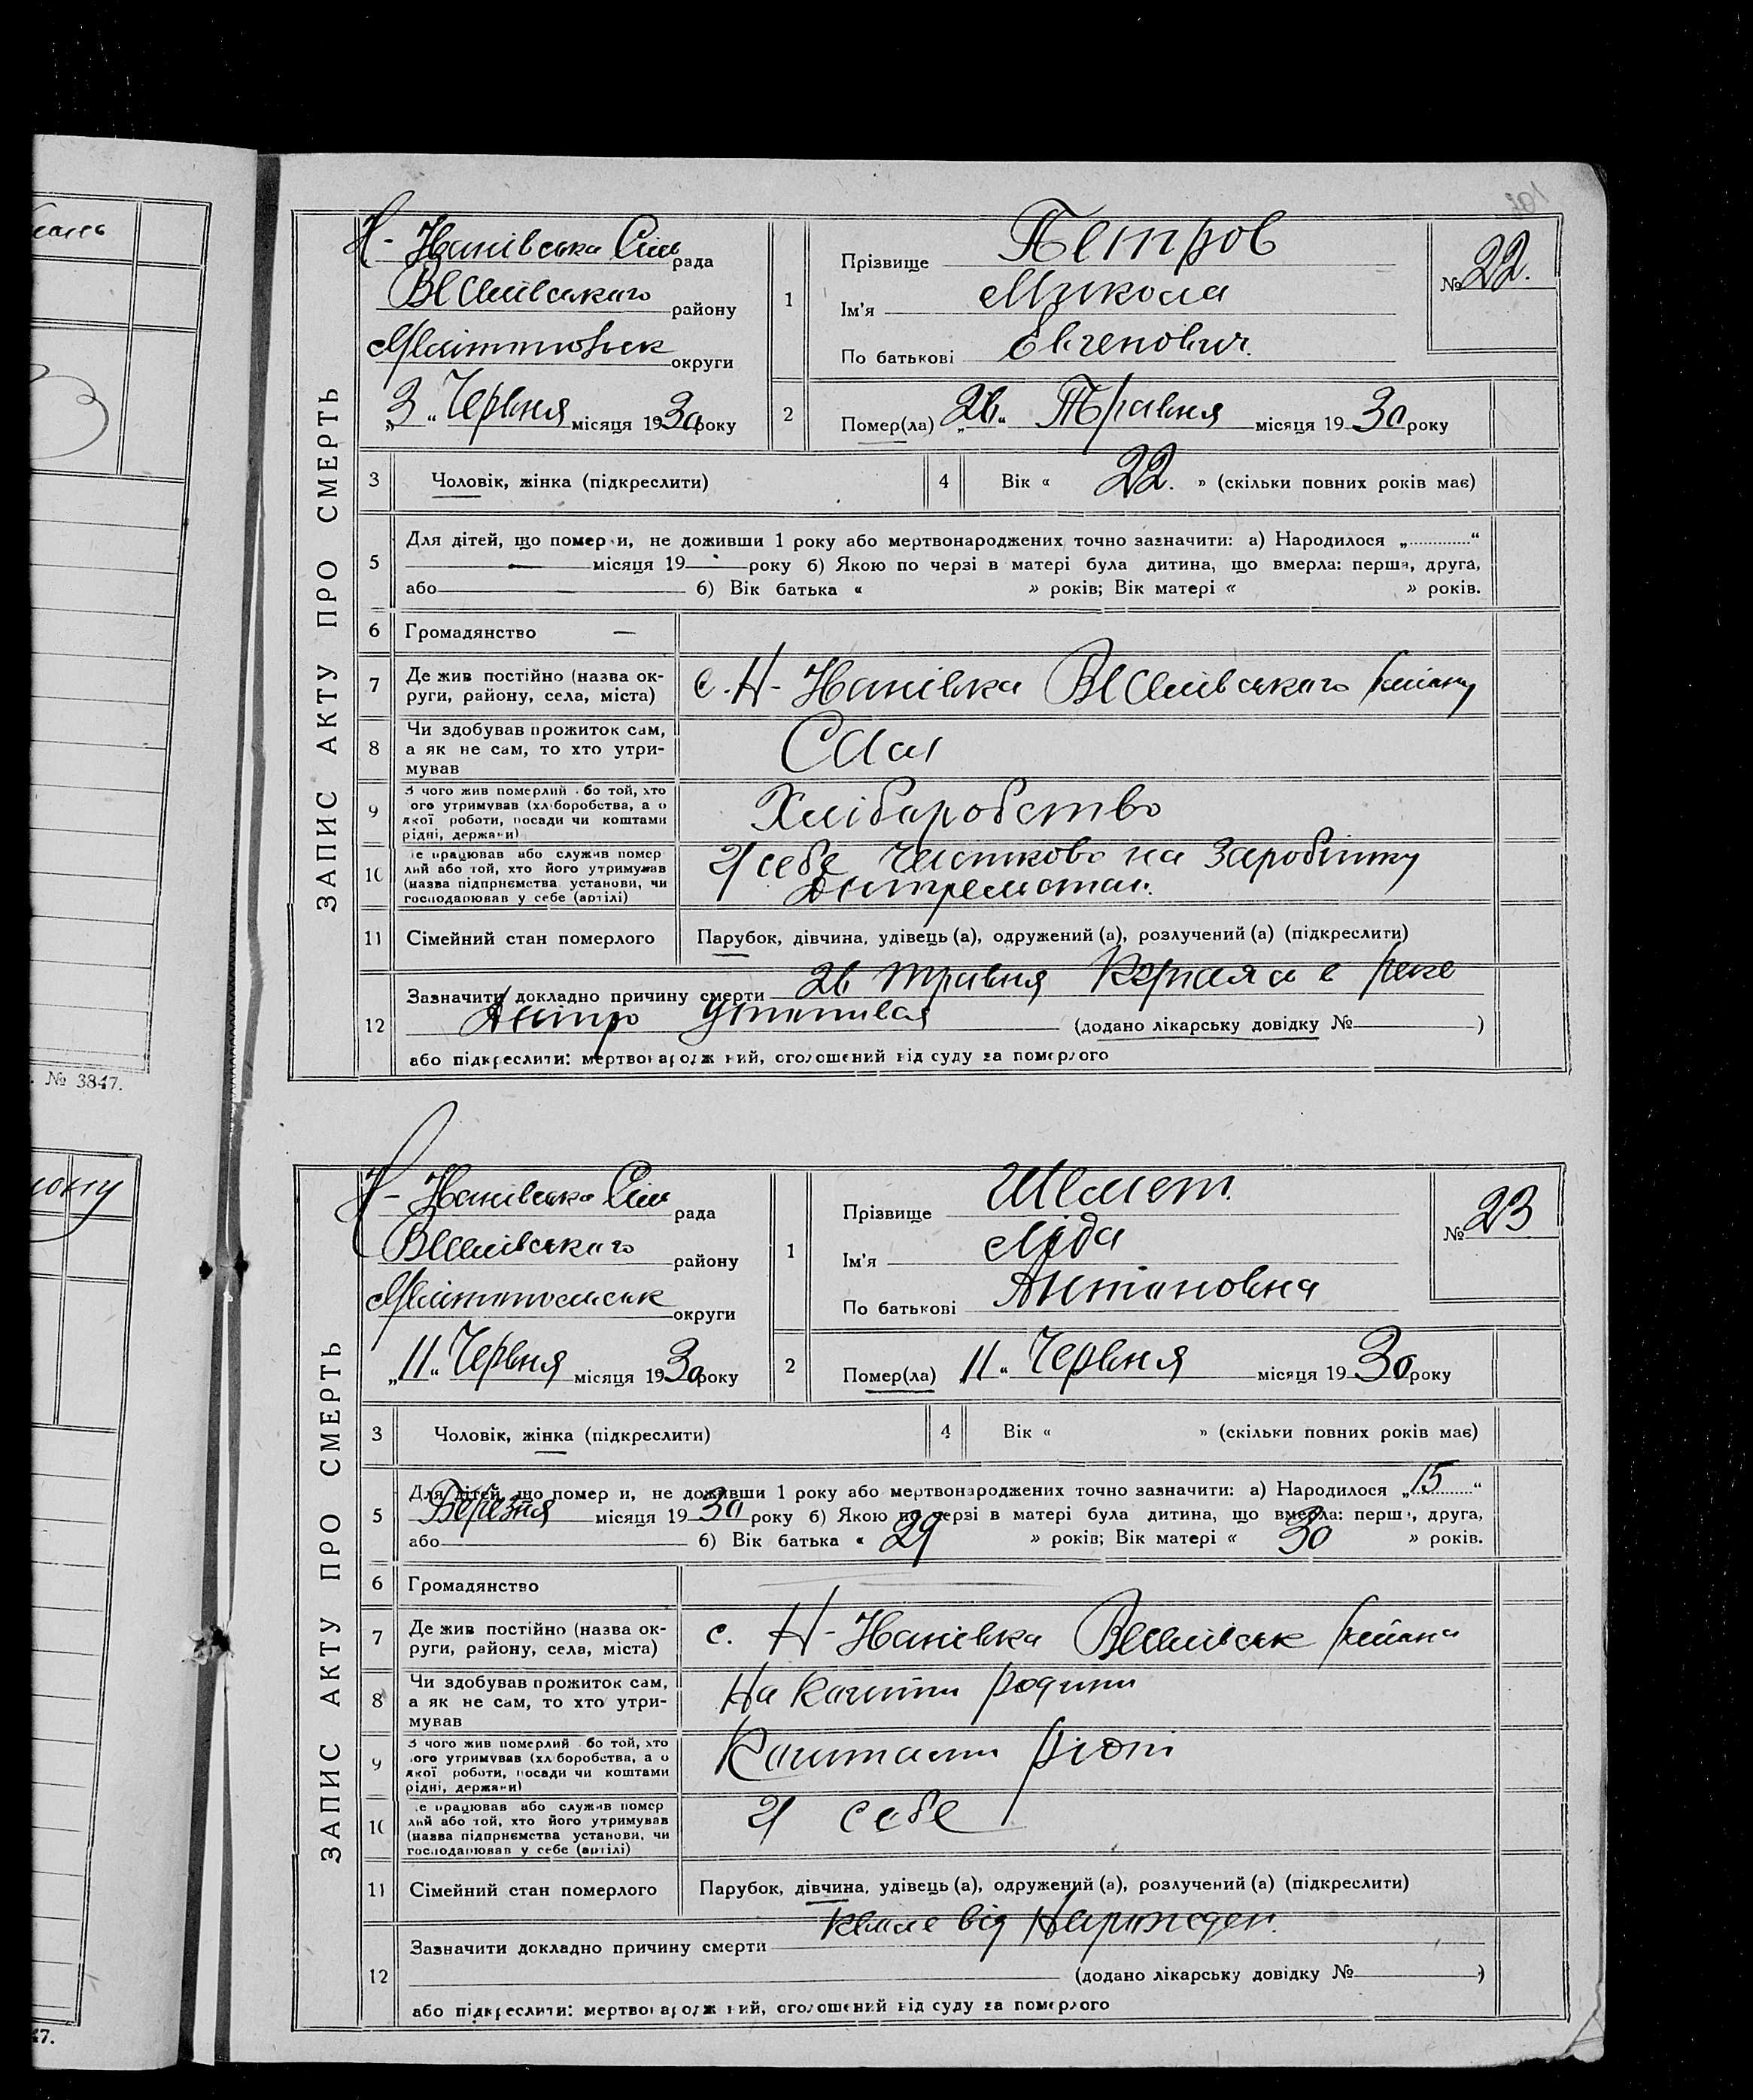 191
ЗАПИС АКТУ ПРО СМЕРТЬ
Н- Іванівська Сіль рада
Веселівського району
Мелітопольск округи
„3“ Червня місяця 1930 року
1
Прізвище Петров
Ім'я Микола
По батькові Евгенович.
№ 22.
2
Помер(ла) „26“ Травня місяця 1930 року
3 Чоловік, жінка (підкреслити)
4 Вік « 22. » (скільки повних років має)
5 Для дітей, що помер и, не доживши 1 року або мертвонароджених точно зазначити: а) Народилося „ “
місяця 19 року б) Якою по черзі в матері була дитина, що вмерла: перша, друга,
або б) Вік батька « » років; Вік матері « » років.
6 Громадянство —
7 Де жив постійно (назва ок-
руги, району, села, міста)
с. Н- Іванівка Веселівського району
8 Чи здобував прожиток сам,
а як не сам, то хто утри-
мував
Сам
9 З чого жив померлий або той, хто
ого утримував (хл боробства, а о
якої роботи, посади чи коштами
рідні, держави)
Хлібаробство
10 е працював або служив помер
лий або той, хто його утримував
(назва підприємства установи, чи
господарював у себе (артілі)
У себе Частково на Заробітку
11 Сімейний стан померлого
Парубок, дівчина, удівець (а), одружений (а), розлучений (а) (підкреслити)
12 Зазначити докладно причину смерти 26 травня в реке
Днепро
(додано лікарську довідку № )
або підкреслити: мертвонародж ний, оголошений від суду за померлого
. № 3847.
ЗАПИС АКТУ ПРО СМЕРТЬ
Н- Іванівська Сіль рада
Веселівського району
Мелітопольськ округи
„11“ Червня місяця 1930 року
1
Прізвище
Ім'я Ліда
По батькові Антоновна
№ 23
2
Помер(ла) „11“ Червня місяця 1930 року
3 Чоловік, жінка (підкреслити)
4 Вік « » (скільки повних років має)
5 Для дітей, що помер и, не доживши 1 року або мертвонароджених точно зазначити: а) Народилося „15“
Березня місяця 1930 року б) Якою по черзі в матері була дитина, що вмерла: перш , друга,
або б) Вік батька « 29 » років; Вік матері « 30 » років.
6 Громадянство
7 Де жив постійно (назва ок-
руги, району, села, міста)
с. Н- Іванівка Веселівськ района
8 Чи здобував прожиток сам,
а як не сам, то хто утри-
мував
На кошти родини
9 З чого жив померлий або той, хто
ого утримував (хл боробства, а о
якої роботи, посади чи коштами
рідні, держави)
Коштами рідні
10 е працював або служив помер
лий або той, хто його утримував
(назва підприємства установи, чи
господарював у себе (артілі)
У себе
11 Сімейний стан померлого
Парубок, дівчина, удівець (а), одружений (а), розлучений (а) (підкреслити)
12 Зазначити докладно причину смерти від
(додано лікарську довідку № )
або підкреслити: мертвонародж ний, оголошений від суду за померлого
47.